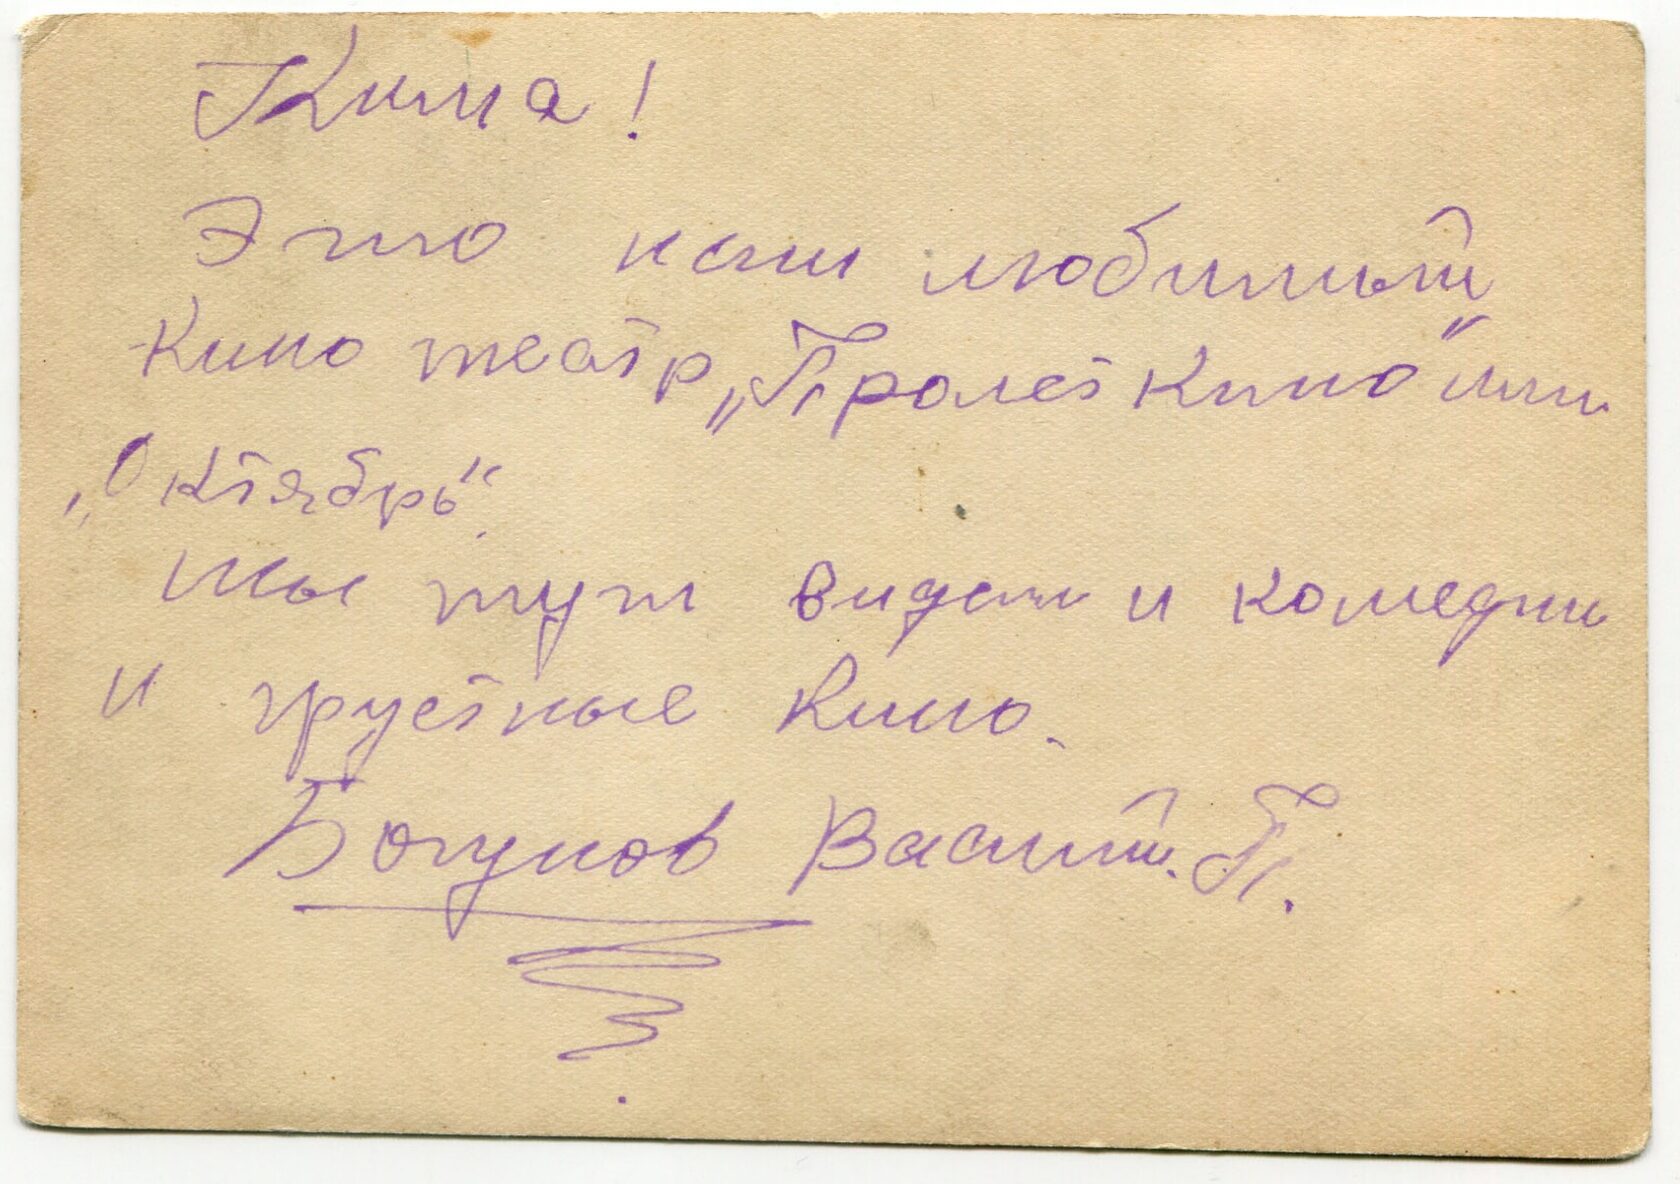 Кима!
Это наш любимый
Кино театр „Пролет Кино" или
„Октябрь".
Мы тут видели и комедии
и грустные Кино.
Богунов Василий. П.